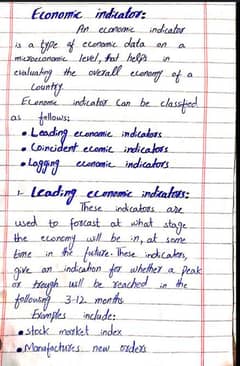 Economic indicator:
An economic indicator
is a type of economic data on a
microeconomic level, that helps in
evaluating the overall economy of a
country.
Economic indicator can be classified
as follows:
• Leading economic indicators
• Coincident ecomic indicators
• Lagging economic indicators
1- Leading economic indicators:
These indicators are
used to forcast at what stage
the economy will be in, at some
time in the future. These indicators,
give an indication for whether a Peak
or trough will be reached in the
following 3-12 months
Examples include:
• Stock market index
• Manufactures new orders